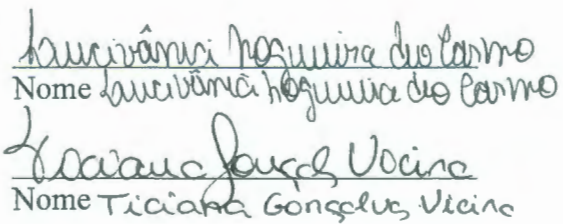 Laucivânia Nogueira do Carmo
Nome Laucivânia Nogueira do Carmo
Ticiana Gonçalves Vieira
Nome Ticiana Gonçalves Vieira